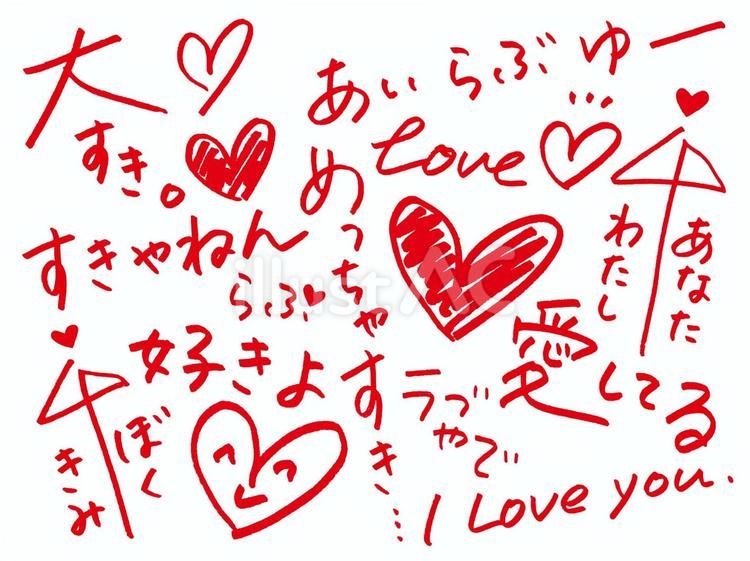 大
すき。
あいらぶゆー
…
Love
めっちゃすき…
すきやねん
らぶ
わたし
あなた
好きよ
愛してる
ラブやで
ぼく
きみ
I Love you.
illust AC